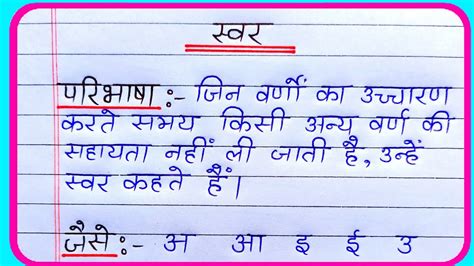 स्वर
परिभाषा :- जिन वर्णों का उच्चारण
करते समय किसी अन्य वर्ण की
सहायता नहीं ली जाती है, उन्हें
स्वर कहते हैं।
जैसे :- अ आ इ ई उ